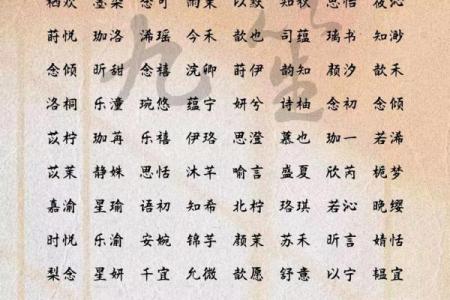 莳悦 珈洛 浠瑶 今禾 歆也 司蕴 瑞书 知渺
念倾 昕甜 念禧 沅卿 莳伊 韵知 颜汐 歆禾
洛桐 乐潼 琬悠 蕴宁 妍兮 诗柚 念初 念倾
苡柠 珈苒 乐禧 伊珞 思澄 慕也 珈一 若浠
苡茉 静姝 思恬 沐芊 喻言 盛夏 欣芮 栀梦
嘉渝 星瑜 语初 知希 北柠 珞琪 若沁 晚缨
时悦 乐渝 安婉 锦芋 颜茉 苏禾 昕言 婧恬
梨念 星妍 千宜 允微 歆愿 舒意 以宁 韫宜
九笙